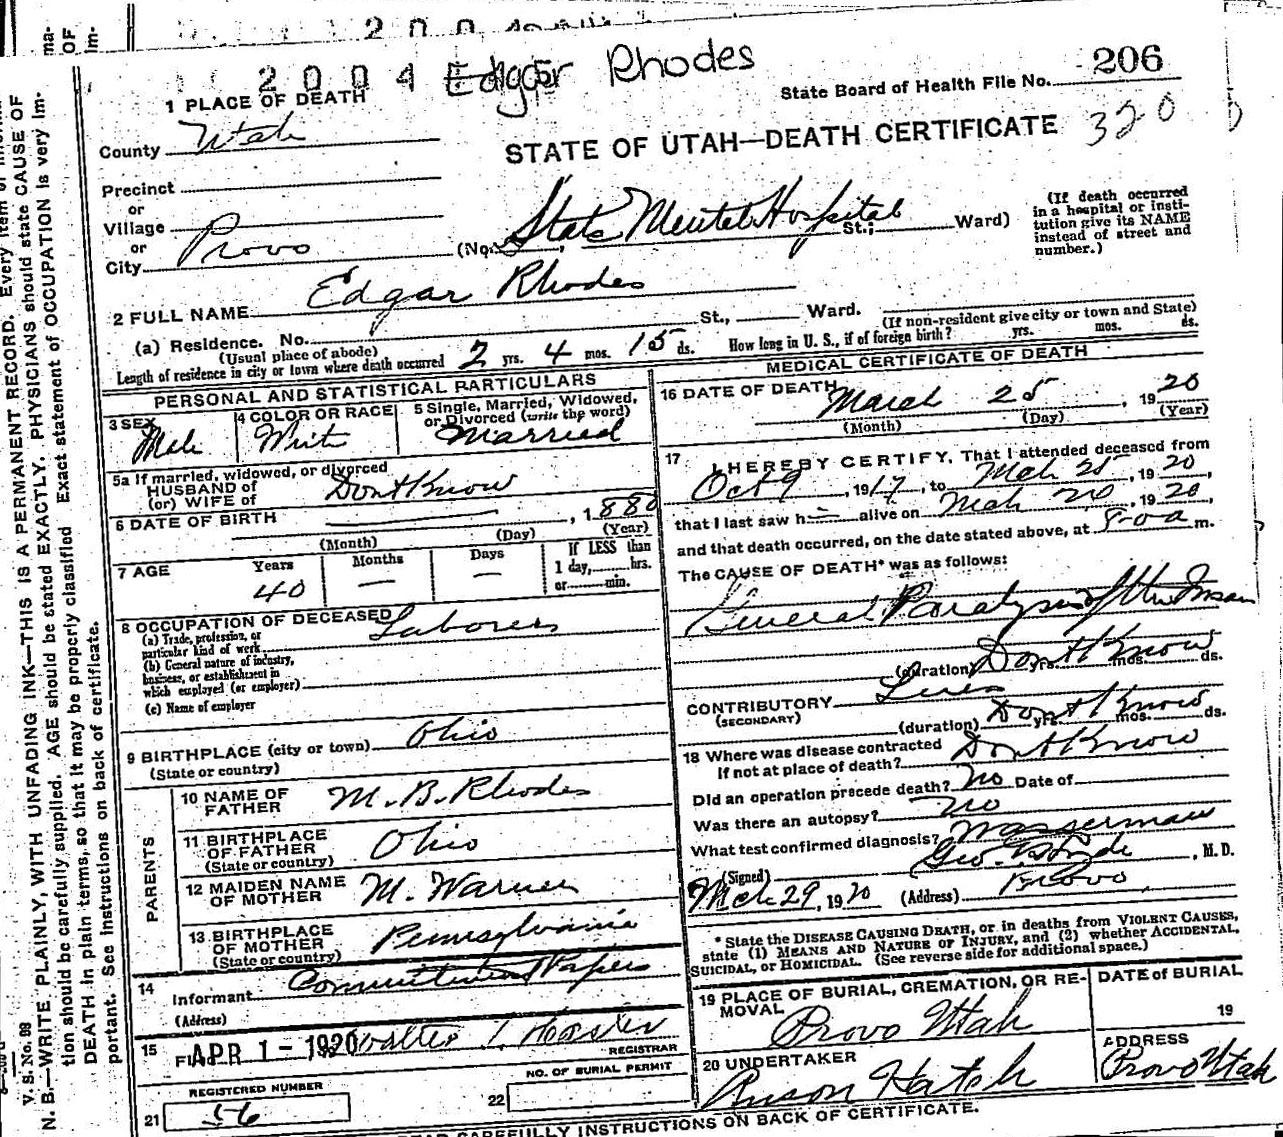 2004 Edgar Rhodes
State Board of Health File No. 206
320
1 PLACE OF DEATH
STATE OF UTAH—DEATH CERTIFICATE
County Utah
Precinct
or
Village
or
City Provo (No. State Mental Hospital St.; Ward)
(If death occurred in a hospital or insti-
tution give its NAME
instead of street and
number.)
2 FULL NAME Edgar Rhodes
(a) Residence. No. St., Ward.
(Usual place of abode) (If non-resident give city or town and State)
Length of residence in city or town where death occurred 2 yrs. 4 mos. 15 ds. How long in U. S., if of foreign birth? yrs. mos. ds.
PERSONAL AND STATISTICAL PARTICULARS
3 SEX Male
4 COLOR OR RACE White
5 Single, Married, Widowed,
or Divorced (write the word)
Married
5a If married, widowed, or divorced
HUSBAND of
(or) WIFE of Dont Know
6 DATE OF BIRTH , 1880
(Month) (Day) (Year)
7 AGE Years Months Days If LESS than
1 day, hrs.
or min.
40 — —
8 OCCUPATION OF DECEASED Laborer
(a) Trade, profession, or
particular kind of work
(b) General nature of industry,
business, or establishment in
which employed (or employer)
(c) Name of employer
9 BIRTHPLACE (city or town) Ohio
(State or country)
PARENTS
10 NAME OF
FATHER M. B. Rhodes
11 BIRTHPLACE
OF FATHER
(State or country) Ohio
12 MAIDEN NAME
OF MOTHER M. Warner
13 BIRTHPLACE
OF MOTHER
(State or country) Pennsylvania
14 Informant Commitment Papers
(Address)
15 Filed APR 1 - 1920 Walter
REGISTRAR
REGISTERED NUMBER
21 56
NO. OF BURIAL PERMIT
22
MEDICAL CERTIFICATE OF DEATH
16 DATE OF DEATH March 25, 1920
(Month) (Day) (Year)
17 I HEREBY CERTIFY, That I attended deceased from
Oct 9, 1917, to Mch 25, 1920,
that I last saw h alive on Mch 24, 1920,
and that death occurred, on the date stated above, at 8-00 a m.
The CAUSE OF DEATH* was as follows:
General Paralysis of the Insan
(duration) Dont Know yrs. mos. ds.
CONTRIBUTORY Lues
(SECONDARY)
(duration) Dont Know yrs. mos. ds.
18 Where was disease contracted
If not at place of death? Dont Know
Did an operation precede death? no Date of
Was there an autopsy? no
What test confirmed diagnosis? Wasserman
(Signed) Geo. , M.D.
Mch 29, 1920 (Address) Provo
* State the DISEASE CAUSING DEATH, or in deaths from VIOLENT CAUSES,
state (1) MEANS AND NATURE OF INJURY, and (2) whether ACCIDENTAL,
SUICIDAL, or HOMICIDAL. (See reverse side for additional space.)
19 PLACE OF BURIAL, CREMATION, OR RE-
MOVAL
Provo Utah
DATE of BURIAL
19
20 UNDERTAKER
Hatch
ADDRESS
Provo Utah
CAREFULLY INSTRUCTIONS ON BACK OF CERTIFICATE.
V. S. No. 98
N. B.—WRITE PLAINLY, WITH UNFADING INK—THIS IS A PERMANENT RECORD. Every item of informa-
tion should be carefully supplied. AGE should be stated EXACTLY. PHYSICIANS should state CAUSE OF
DEATH in plain terms, so that it may be properly classified Exact statement of OCCUPATION is very im-
portant. See Instructions on back of certificate.